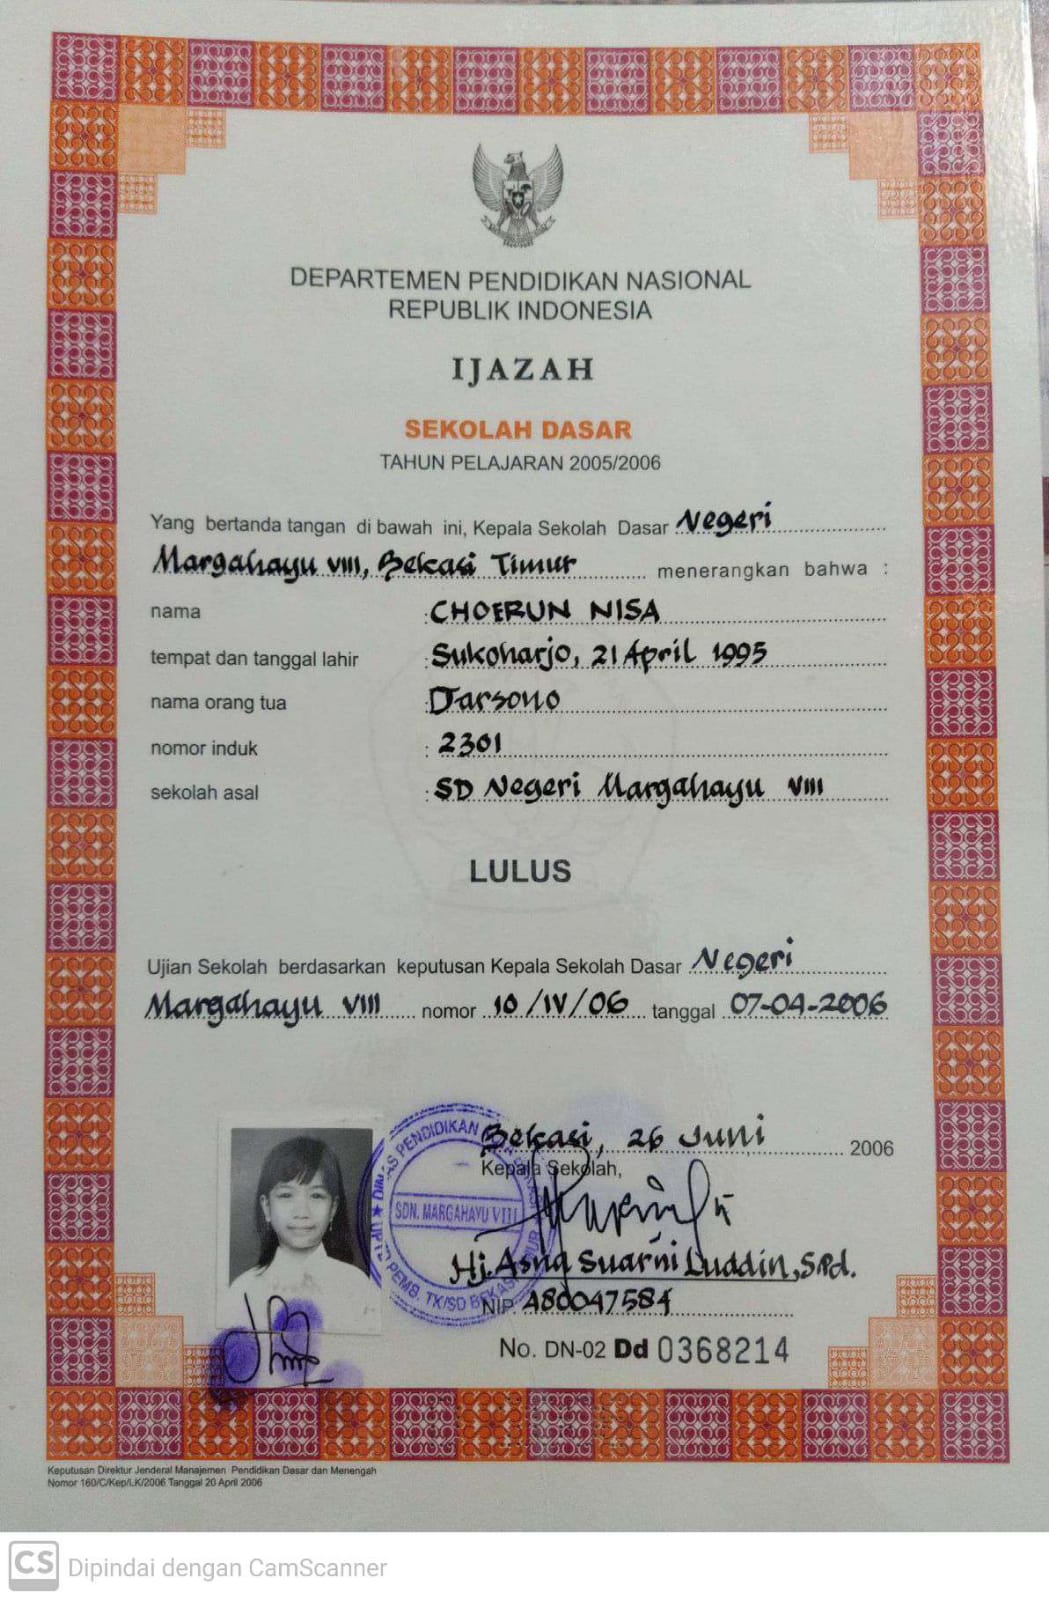 DEPARTEMEN PENDIDIKAN NASIONAL
REPUBLIK INDONESIA
IJAZAH
SEKOLAH DASAR
TAHUN PELAJARAN 2005/2006
Yang bertanda tangan di bawah ini, Kepala Sekolah Dasar Negeri
Margahayu VIII, Bekasi Timur menerangkan bahwa :
nama : CHOERUN NISA
tempat dan tanggal lahir : Sukoharjo, 21 April 1995
nama orang tua : Darsono
nomor induk : 2301
sekolah asal : SD Negeri Margahayu VIII
LULUS
Ujian Sekolah berdasarkan keputusan Kepala Sekolah Dasar Negeri
Margahayu VIII nomor 10/IV/06 tanggal 07-04-2006
Bekasi, 26 Juni 2006
Kepala Sekolah,
DINAS PENDIDIKAN
SDN. MARGAHAYU VIII
PEMB. TK/SD BEKASI
Hj. Asna Suarni Luddin, S.Pd.
NIP. 480047584
No. DN-02 Dd 0368214
Keputusan Direktur Jenderal Manajemen Pendidikan Dasar dan Menengah
Nomor 160/C/Kep/LK/2006 Tanggal 20 April 2006
CS Dipindai dengan CamScanner